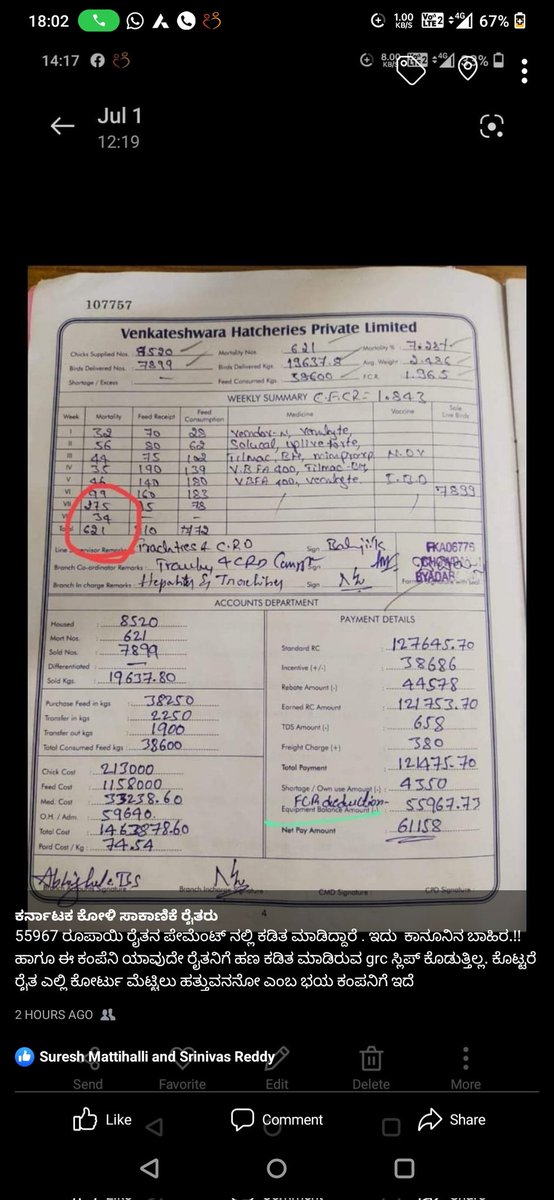 18:02 1.00 KB/S Vo LTE2 4G 67%
14:17 8.00 KB/S 4G
Jul 1
12:19
107757
Venkateshwara Hatcheries Private Limited
Chicks Supplied Nos. 8520 Mortality Nos. 621 Mortality %
Birds Delivered Nos. 7899 Birds Delivered Kgs. 19637.8 Avg. Weight 2.486
Shortage / Excess Feed Consumed Kgs. 38600 FCR 1.965
WEEKLY SUMMARY C.F.CR= 1.843
Week Mortality Feed Receipt Feed Consumption Medicine Vaccine Sale Live Birds
I 32 70 28
II 56 80 62
III 44 75 102
IV 35 190 139 V.B.FA 400,
V 46 140 180 VBFA 400, I.B.D
VI 99 160 183 7899
VII 275 78
34
Total 621 772
Line Supervisor Remarks & C.R.D Sign
Branch Co-ordinator Remarks : & CRD Sign
Branch In charge Remarks : Sign
FKA06775
BYADAR
ACCOUNTS DEPARTMENT
Housed : 8520
Mort Nos. : 621
Sold Nos. : 7899
Differentiated :
Sold Kgs. : 19637.80
Purchase Feed in kgs : 38250
Transfer in kgs : 2250
Transfer out kgs : 1900
Total Consumed Feed kgs : 38600
Chick Cost : 213000
Feed Cost : 1158000
Med. Cost : 33238.60
O.H / Adm. : 59640
Total Cost : 1463878.60
Pord Cost / Kg : 74.54
PAYMENT DETAILS
Standard RC : 127645.70
Incentive (+/-) : 38686
Rebate Amount (-) : 44578
Earned RC Amount : 121753.70
TDS Amount (-) : 658
Freight Charge (+) : 380
Total Payment : 121475.70
Shortage / Own use Amount (-) : 4350
FCR deduction-
Equipment Balance Amount (-) : 55967.73
Net Pay Amount : 61158
Branch Incharge Signature CMD Signature : CPD Signature :
4
ಕರ್ನಾಟಕ ಕೋಳಿ ಸಾಕಾಣಿಕೆ ರೈತರು
55967 ರೂಪಾಯಿ ರೈತನ ಪೇಮೆಂಟ್ ನಲ್ಲಿ ಕಡಿತ ಮಾಡಿದ್ದಾರೆ . ಇದು ಕಾನೂನಿನ ಬಾಹಿರ.!!
ಹಾಗೂ ಈ ಕಂಪೆನಿ ಯಾವುದೇ ರೈತನಿಗೆ ಹಣ ಕಡಿತ ಮಾಡಿರುವ grc ಸ್ಲಿಪ್ ಕೊಡುತ್ತಿಲ್ಲ. ಕೊಟ್ಟರೆ
ರೈತ ಎಲ್ಲಿ ಕೋರ್ಟು ಮೆಟ್ಟಿಲು ಹತ್ತುವನನೋ ಎಂಬ ಭಯ ಕಂಪನಿಗೆ ಇದೆ
2 HOURS AGO
Suresh Mattihalli and Srinivas Reddy
Send Favorite Edit Delete More
Like Comment Share